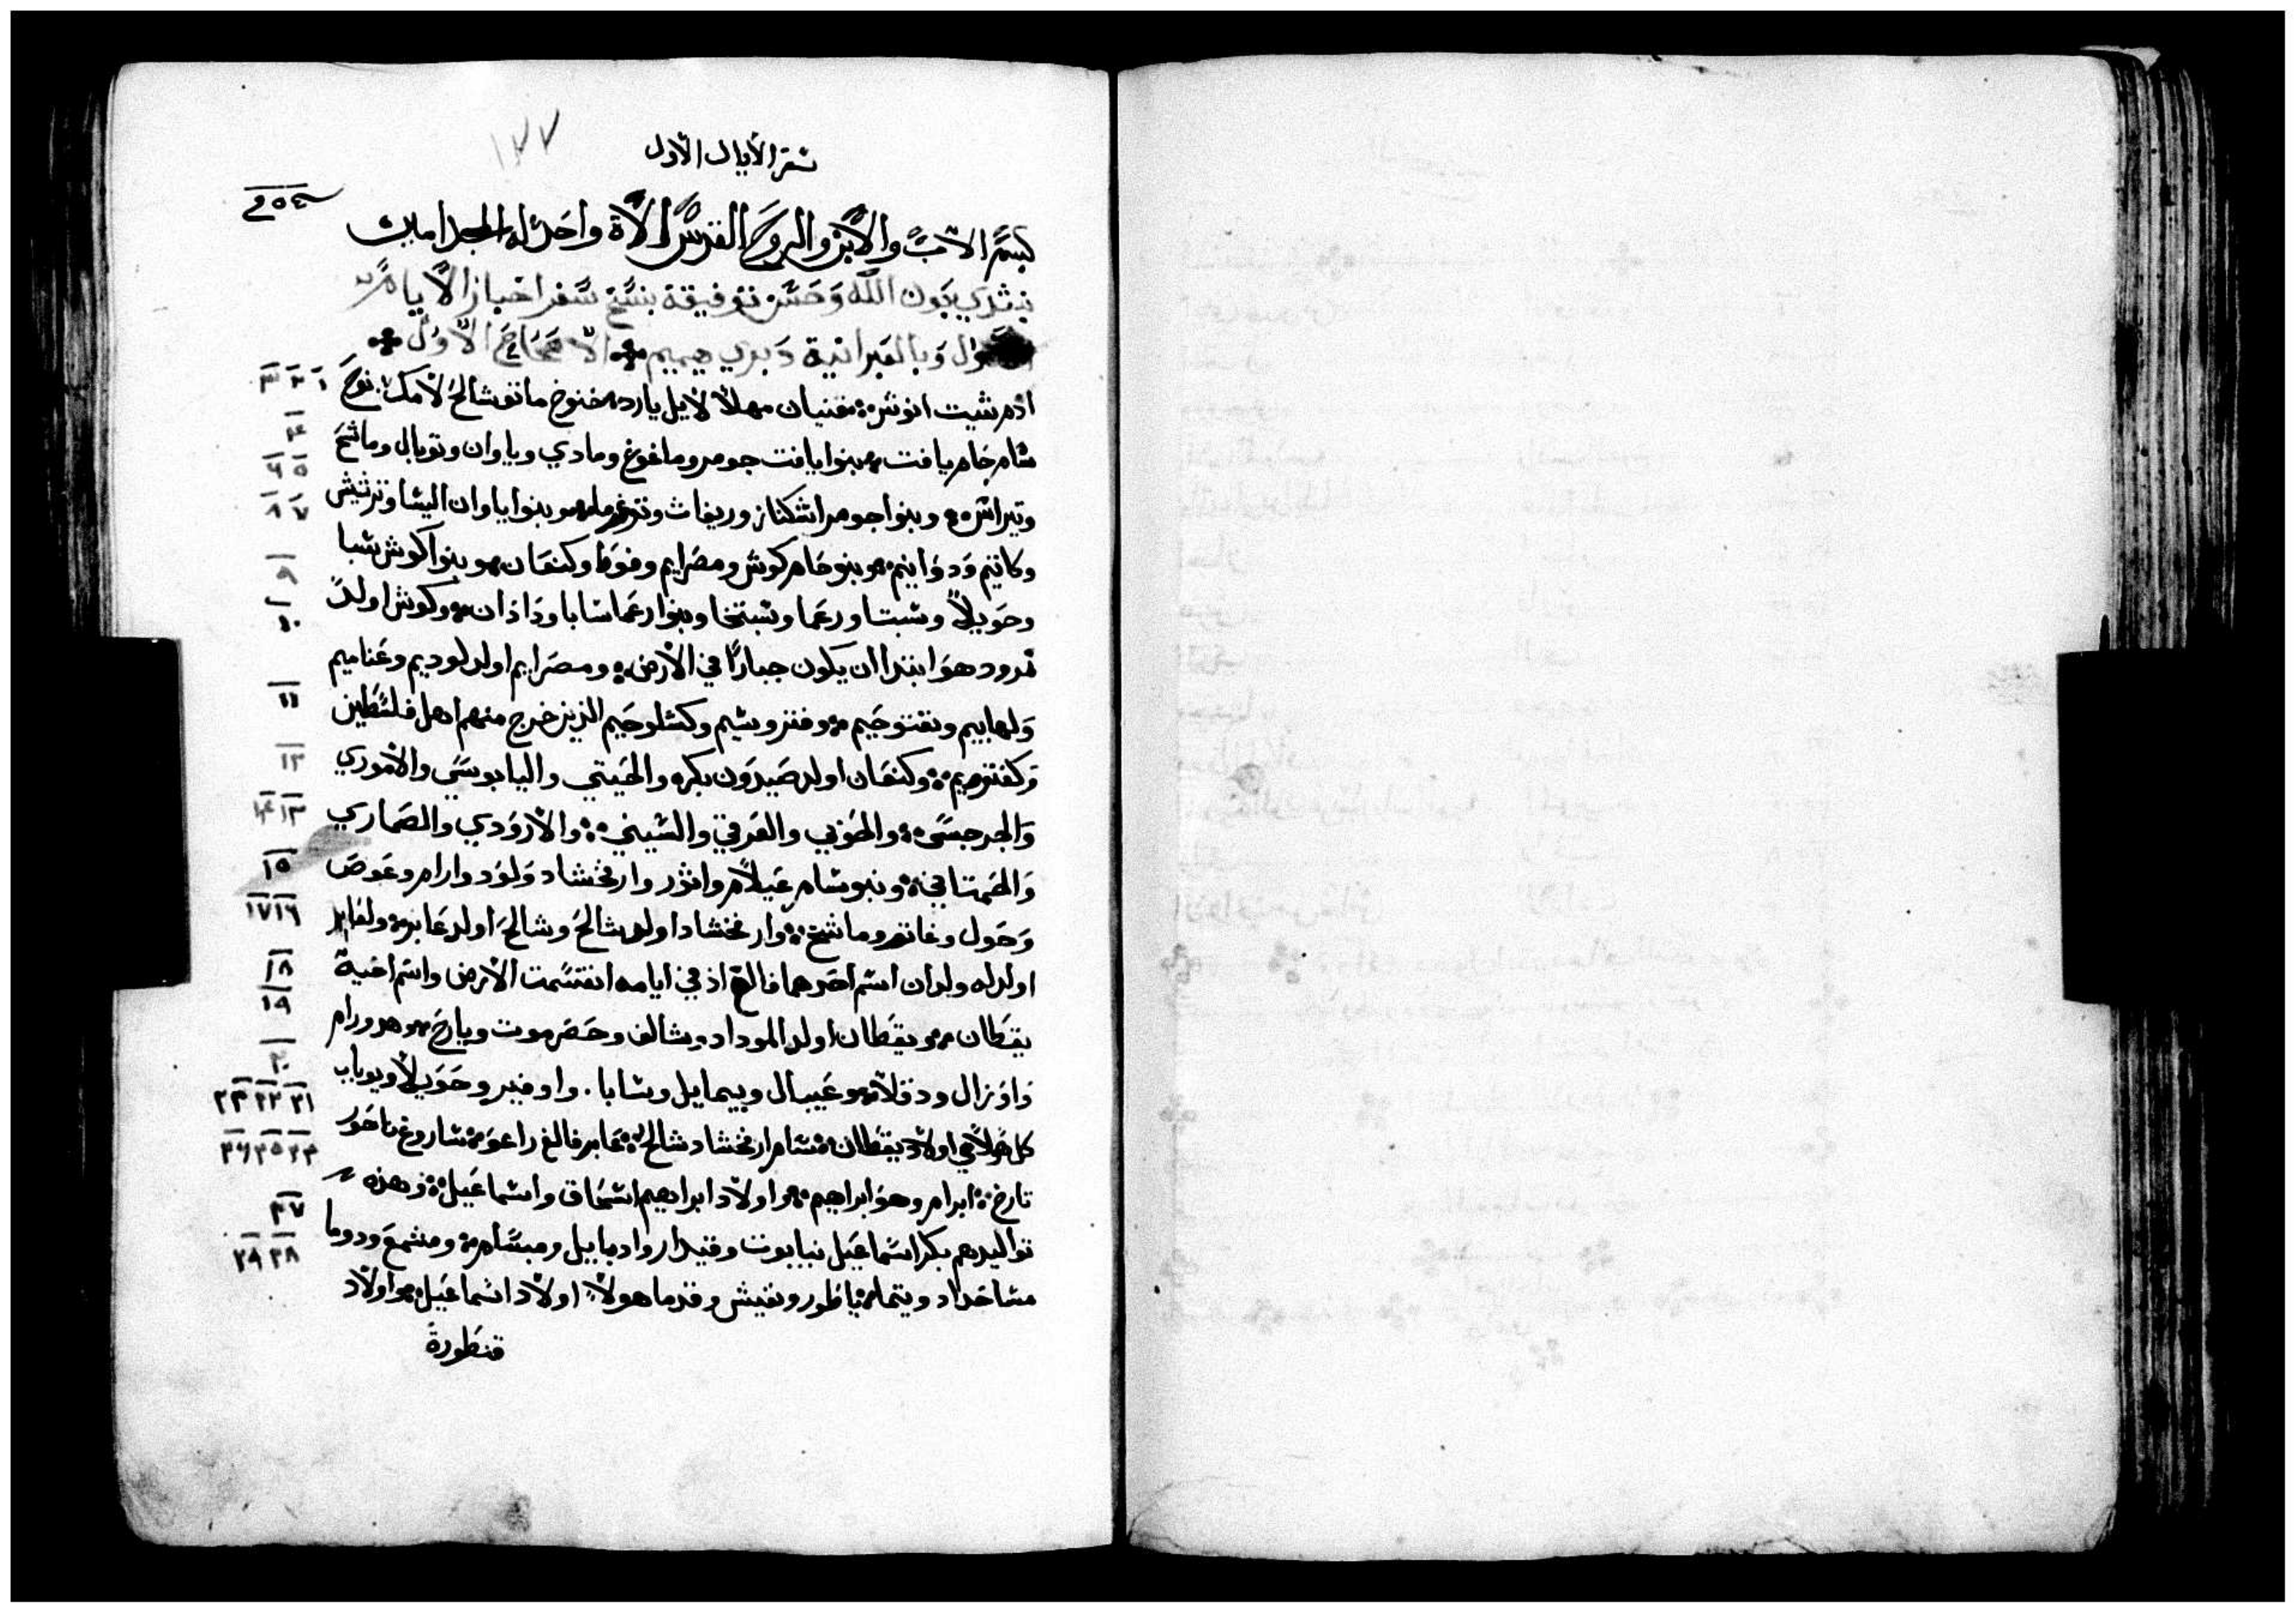 ١٢٧
سفر الايام الاول
بسم الاب والابن والروح القدس الاه واحد له المجد امين
نبتدي بعون الله وحسن توفيقه بنسخ سفر اخبار الايام
الاول وبالعبرانية دبري هيميم الاصحاح الاول
ادم شيت انوش قينان مهلالايل يارد خنوخ ماتوشالح لامك نوح
١ ٢ ٣
سام حام يافت بنوا يافت جومر وماغوغ ومادي وياوان وتوبال وماشخ
٤
٥ ٦
وتيراش وبنوا جومر اشكناز وريفات وتوغرما وبنوا ياوان اليشا وترشيش
٧ ٨
وكاتيم ودوانيم وبنو حام كوش ومصرايم وفوط وكنعان وبنوا كوش شبا
٩
وحويلا وشبتا ورعما وشبتخا وبنوا رعما شابا وداذان وكوش اولد
١٠
نمرود هوا ابتدا ان يكون جبارا في الارض ومصرايم اولد لوديم وعناميم
١١
ولهابيم ونفتوحيم وفتروشيم وكسلوحيم الذين خرج منهم اهل فلسطين
١٢
وكفتوريم وكنعان اولد صيدون بكره والحيتي واليابوسي والاموري
١٣ ١٤
والجرجسي والحوي والعرقي والسيني والاروَدي والصماري
١٥
والحمتاي وبنو سام عيلام واثور وارفخشاد ولود وارام وعوص
١٦ ١٧
وحول وغاتر وماشخ وارفخشاد اولد شالح وشالح اولد عابر ولعابر
١٨
اولد له ولدان اسم احدهما فالغ اذ في ايامه انقسمت الارض واسم اخيه
١٩
يقطان ويقطان اولد الموداد وشالف وحضرموت ويارح وهدورام
٢٠
واوزال ودقلا وعيبال وبيمايل وشابا. واوفير وحويلا ويوباب
٢١ ٢٢ ٢٣
كل هولاي اولاد يقطان سام ارفخشاد شالح عابر فالغ راعو شاروغ ناحور
٢٤ ٢٥ ٢٦
تارخ ابرام وهو ابراهيم واولاد ابراهيم اسحاق واسماعيل وهذه
٢٧
تواليدهم بكر اسماعيل نبايوت وقيدار وادبايل ومبسام ومشمع ودوما
٢٨ ٢٩
مشا حداد ويتما ياطور ونفيش وقدما هولا اولاد اسماعيل واولاد
قنطورة